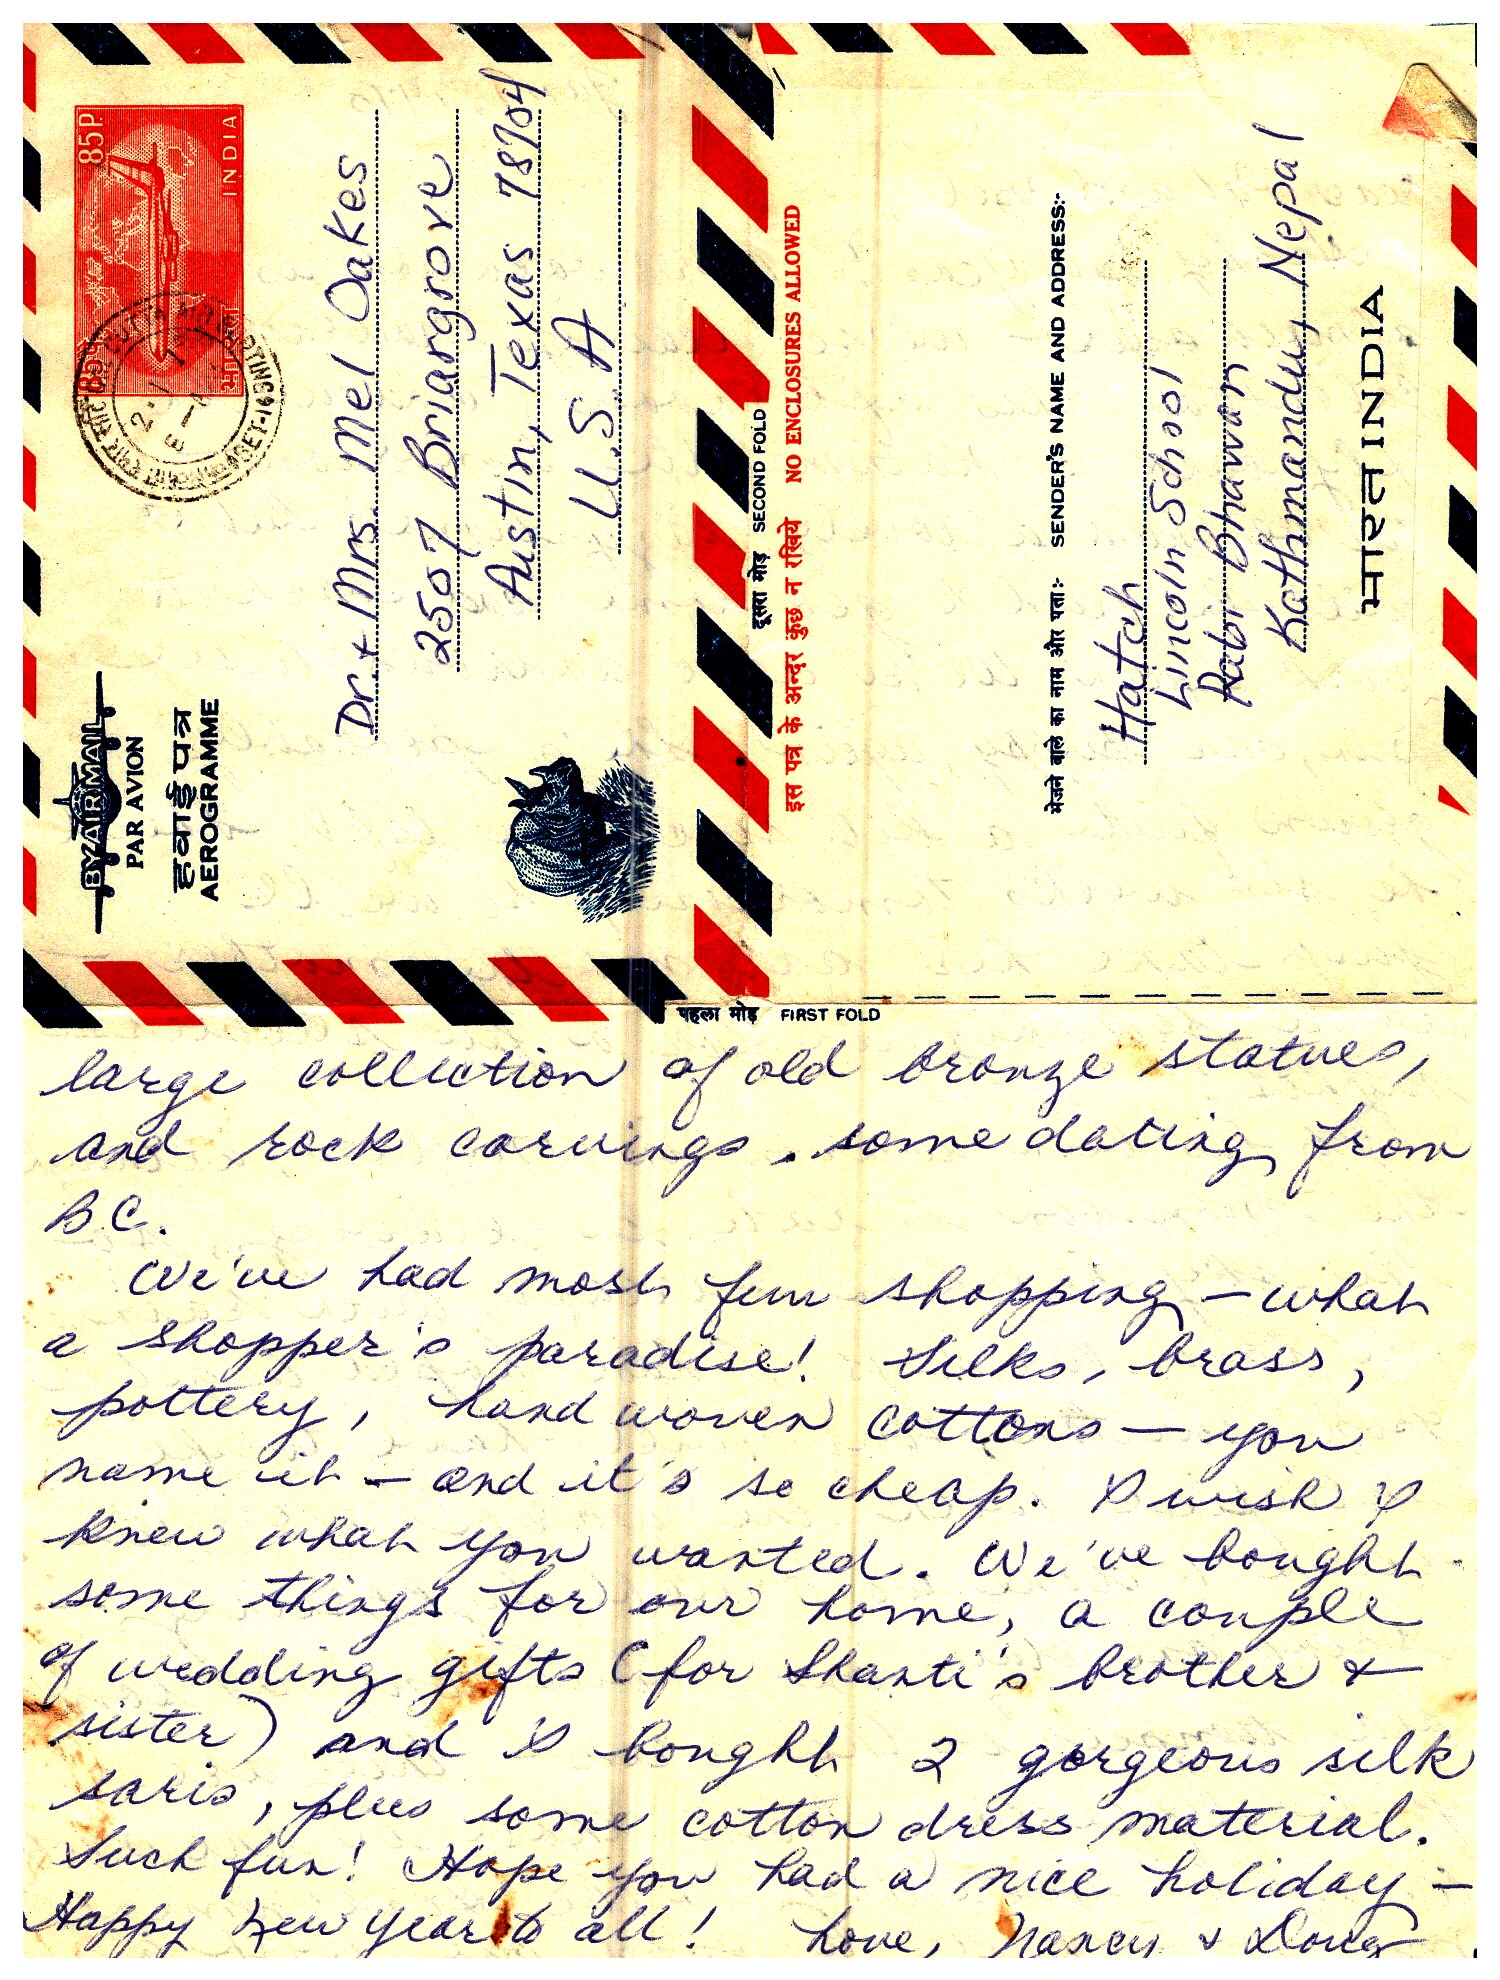 85P.
INDIA
BY AIR MAIL
PAR AVION
हवाई पत्र
AEROGRAMME
Dr. & Mrs. Mel Oakes
2507 Briargrove
Austin, Texas 78704
U.S.A
दूसरा मोड़ SECOND FOLD
इस पत्र के अन्दर कुछ न रखिये NO ENCLOSURES ALLOWED
भेजने वाले का नाम और पता:- SENDER'S NAME AND ADDRESS:-
Hatch
Lincoln School
Rabi Bhawan
Kathmandu, Nepal
भारत INDIA
पहला मोड़ FIRST FOLD
large collection of old bronze statues,
and rock carvings, some dating from
B.C.
We've had most fun shopping – what
a shopper's paradise! Silks, brass,
pottery, hand woven cottons – you
name it – and it's so cheap. I wish I
knew what you wanted. We've bought
some things for our home, a couple
of wedding gifts (for Shanti's brother &
sister) and I bought 2 gorgeous silk
saris, plus some cotton dress material.
Such fun! Hope you had a nice holiday –
Happy New Year to all! Love, Nancy & Doug